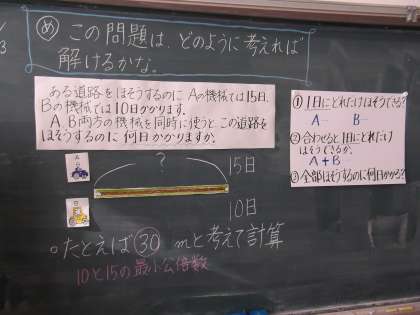 め この問題は、どのように考えれば
解けるかな。
ある道路をほそうするのに、Aの機械では15日、
Bの機械では10日かかります。
A、B両方の機械を同時に使うと、この道路を
ほそうするのに何日かかりますか。
①1日にどれだけほそうできる?
A— B—
②合わせると1日にどれだけ
ほそうできるか。
A+B
③全部ほそうするのに何日か?
A
?
15日
10日
。たとえば㉚mと考えて計算
10と15の最小公倍数